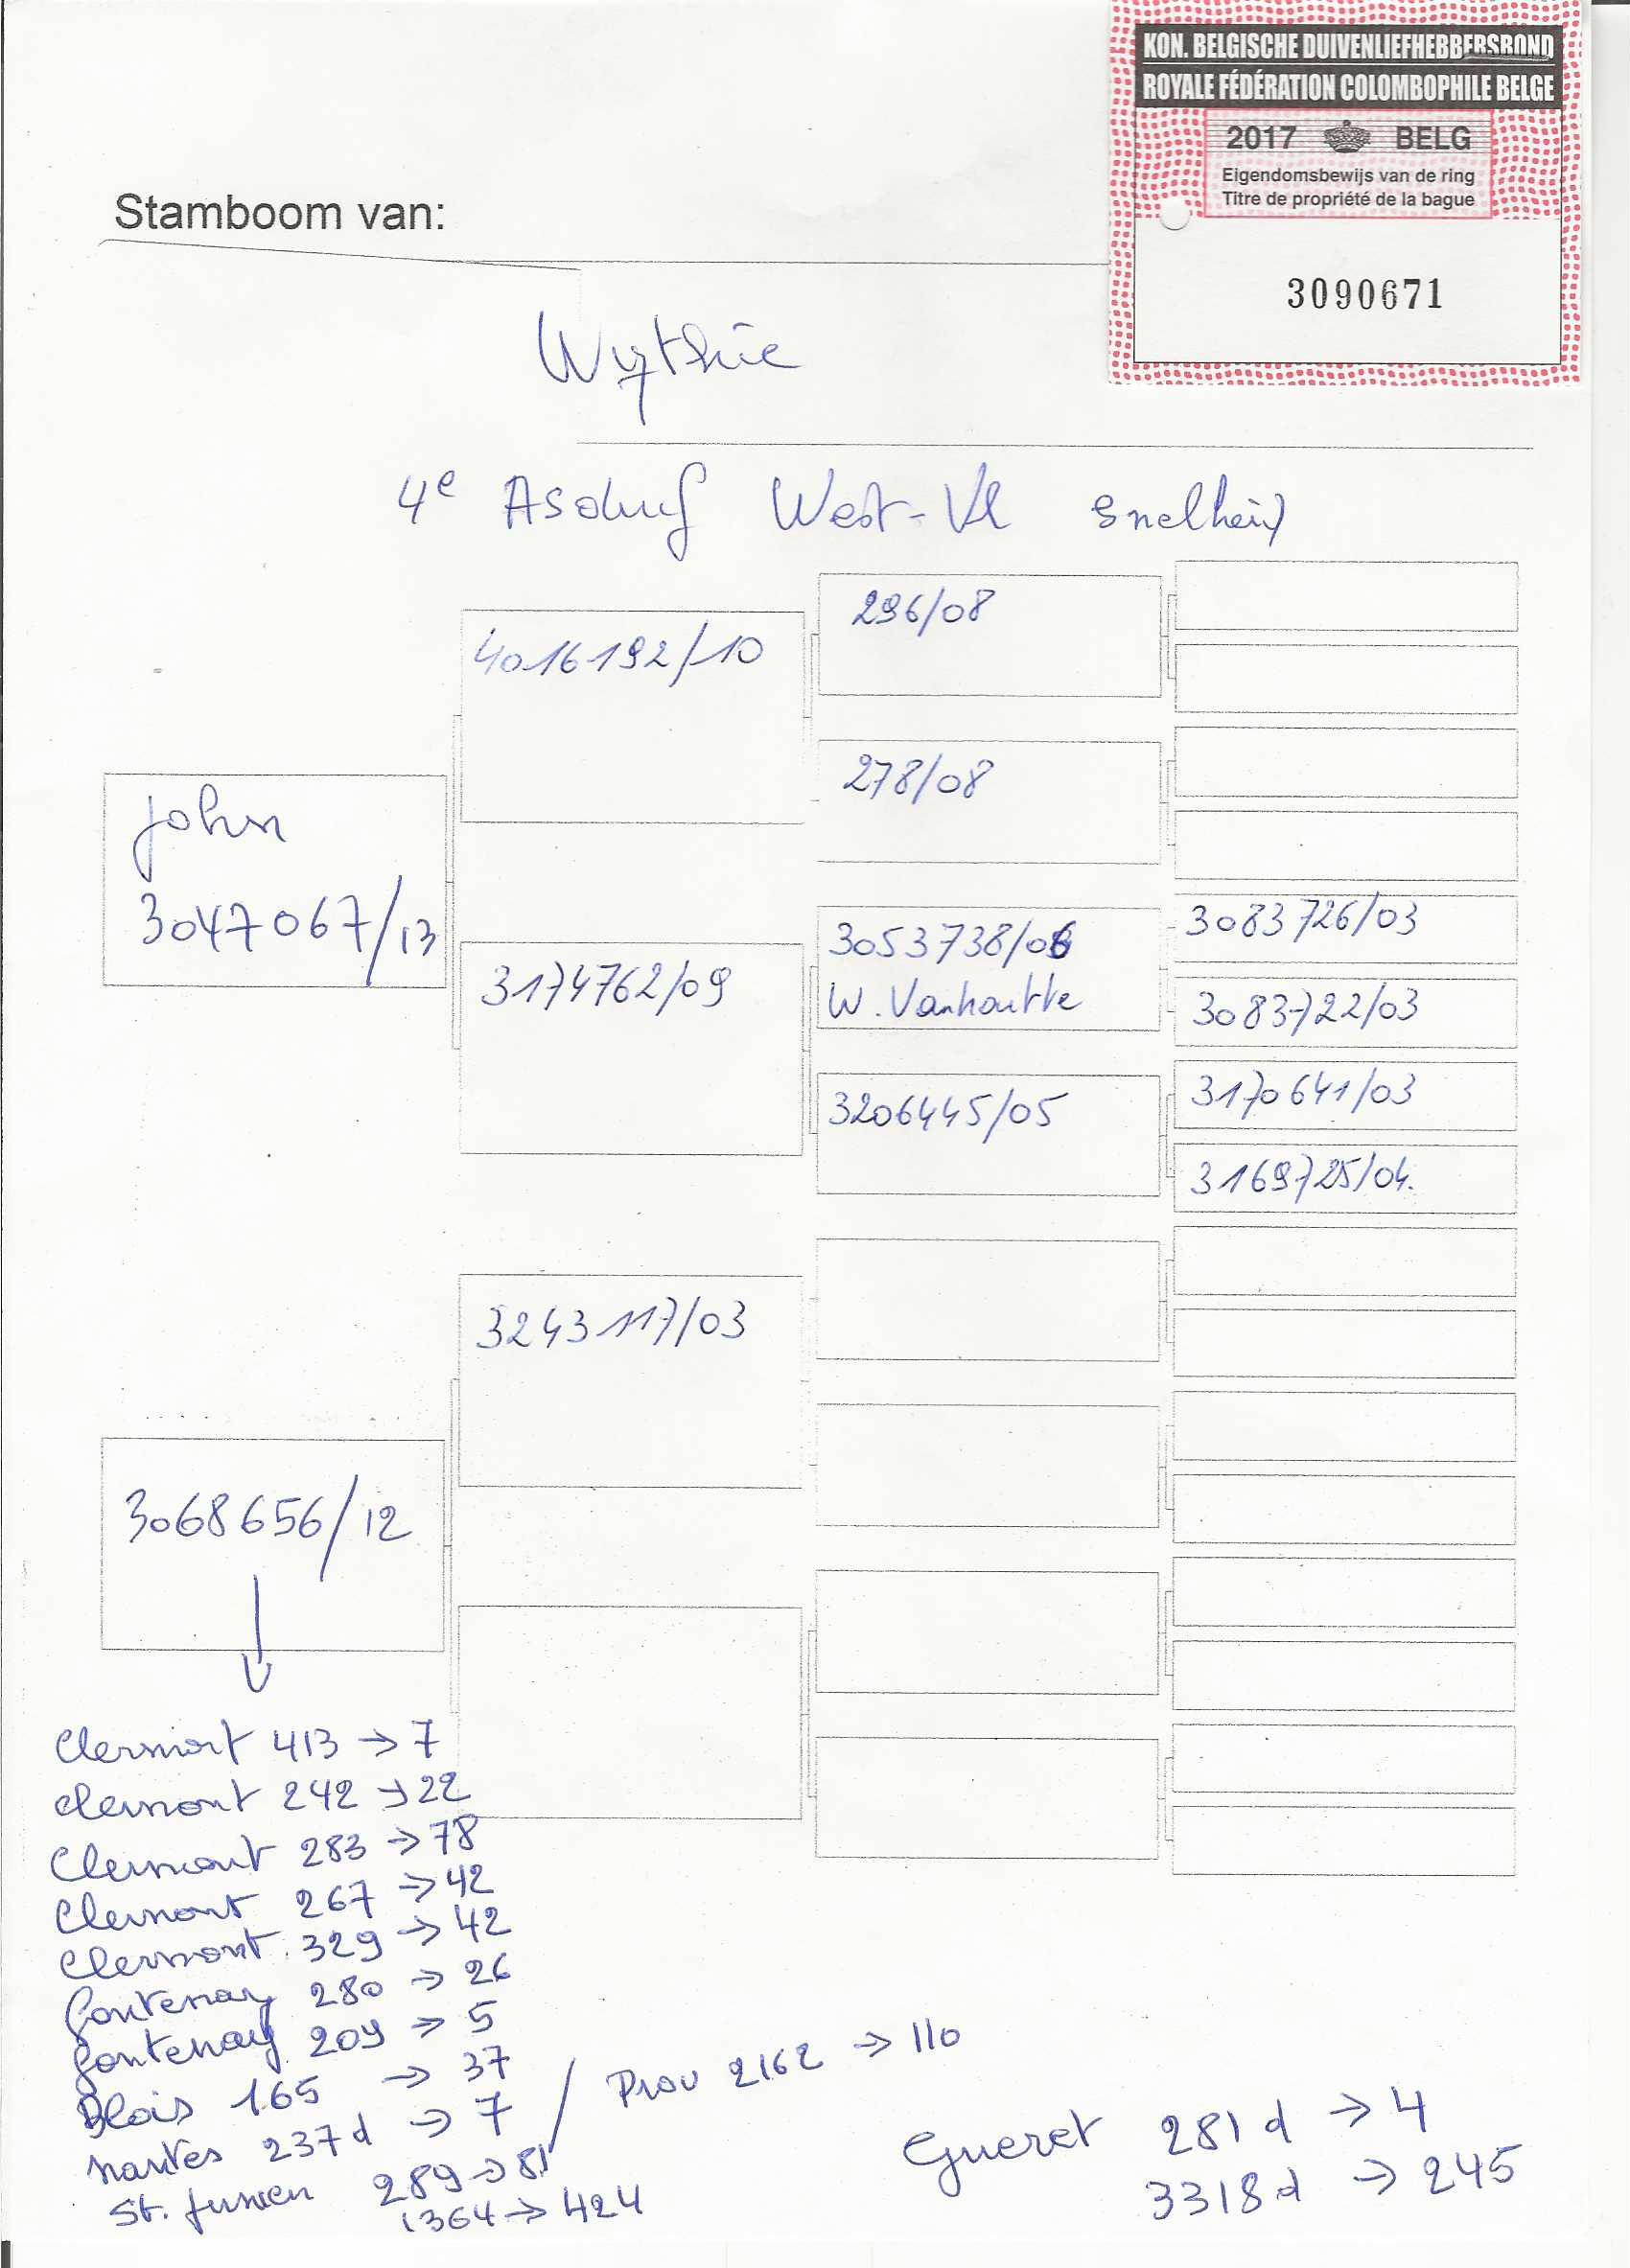 KON. BELGISCHE DUIVENLIEFHEBBERSBOND
ROYALE FÉDÉRATION COLOMBOPHILE BELGE
2017 BELG
Eigendomsbewijs van de ring
Titre de propriété de la bague
3090671
Stamboom van:
4e Asduif West-Vl snelheid
296/08
4016192/10
278/08
John
3047067/13
3083726/03
3053738/06
W. Vanhoutte
3174762/09
3083722/03
3170641/03
3206445/05
3169725/04.
3243117/03
3068656/12
Clermont 413 → 7
Clermont 242 → 22
Clermont 283 → 78
Clermont 267 → 42
Clermont 329 → 42
Fontenay 280 → 26
Fontenay 209 → 5
Blois 165 → 37
Nantes 237d → 7 / Prov 2162 → 110
St. Junien 289 → 81
1364 → 424
Gueret 281d → 4
3318d → 245